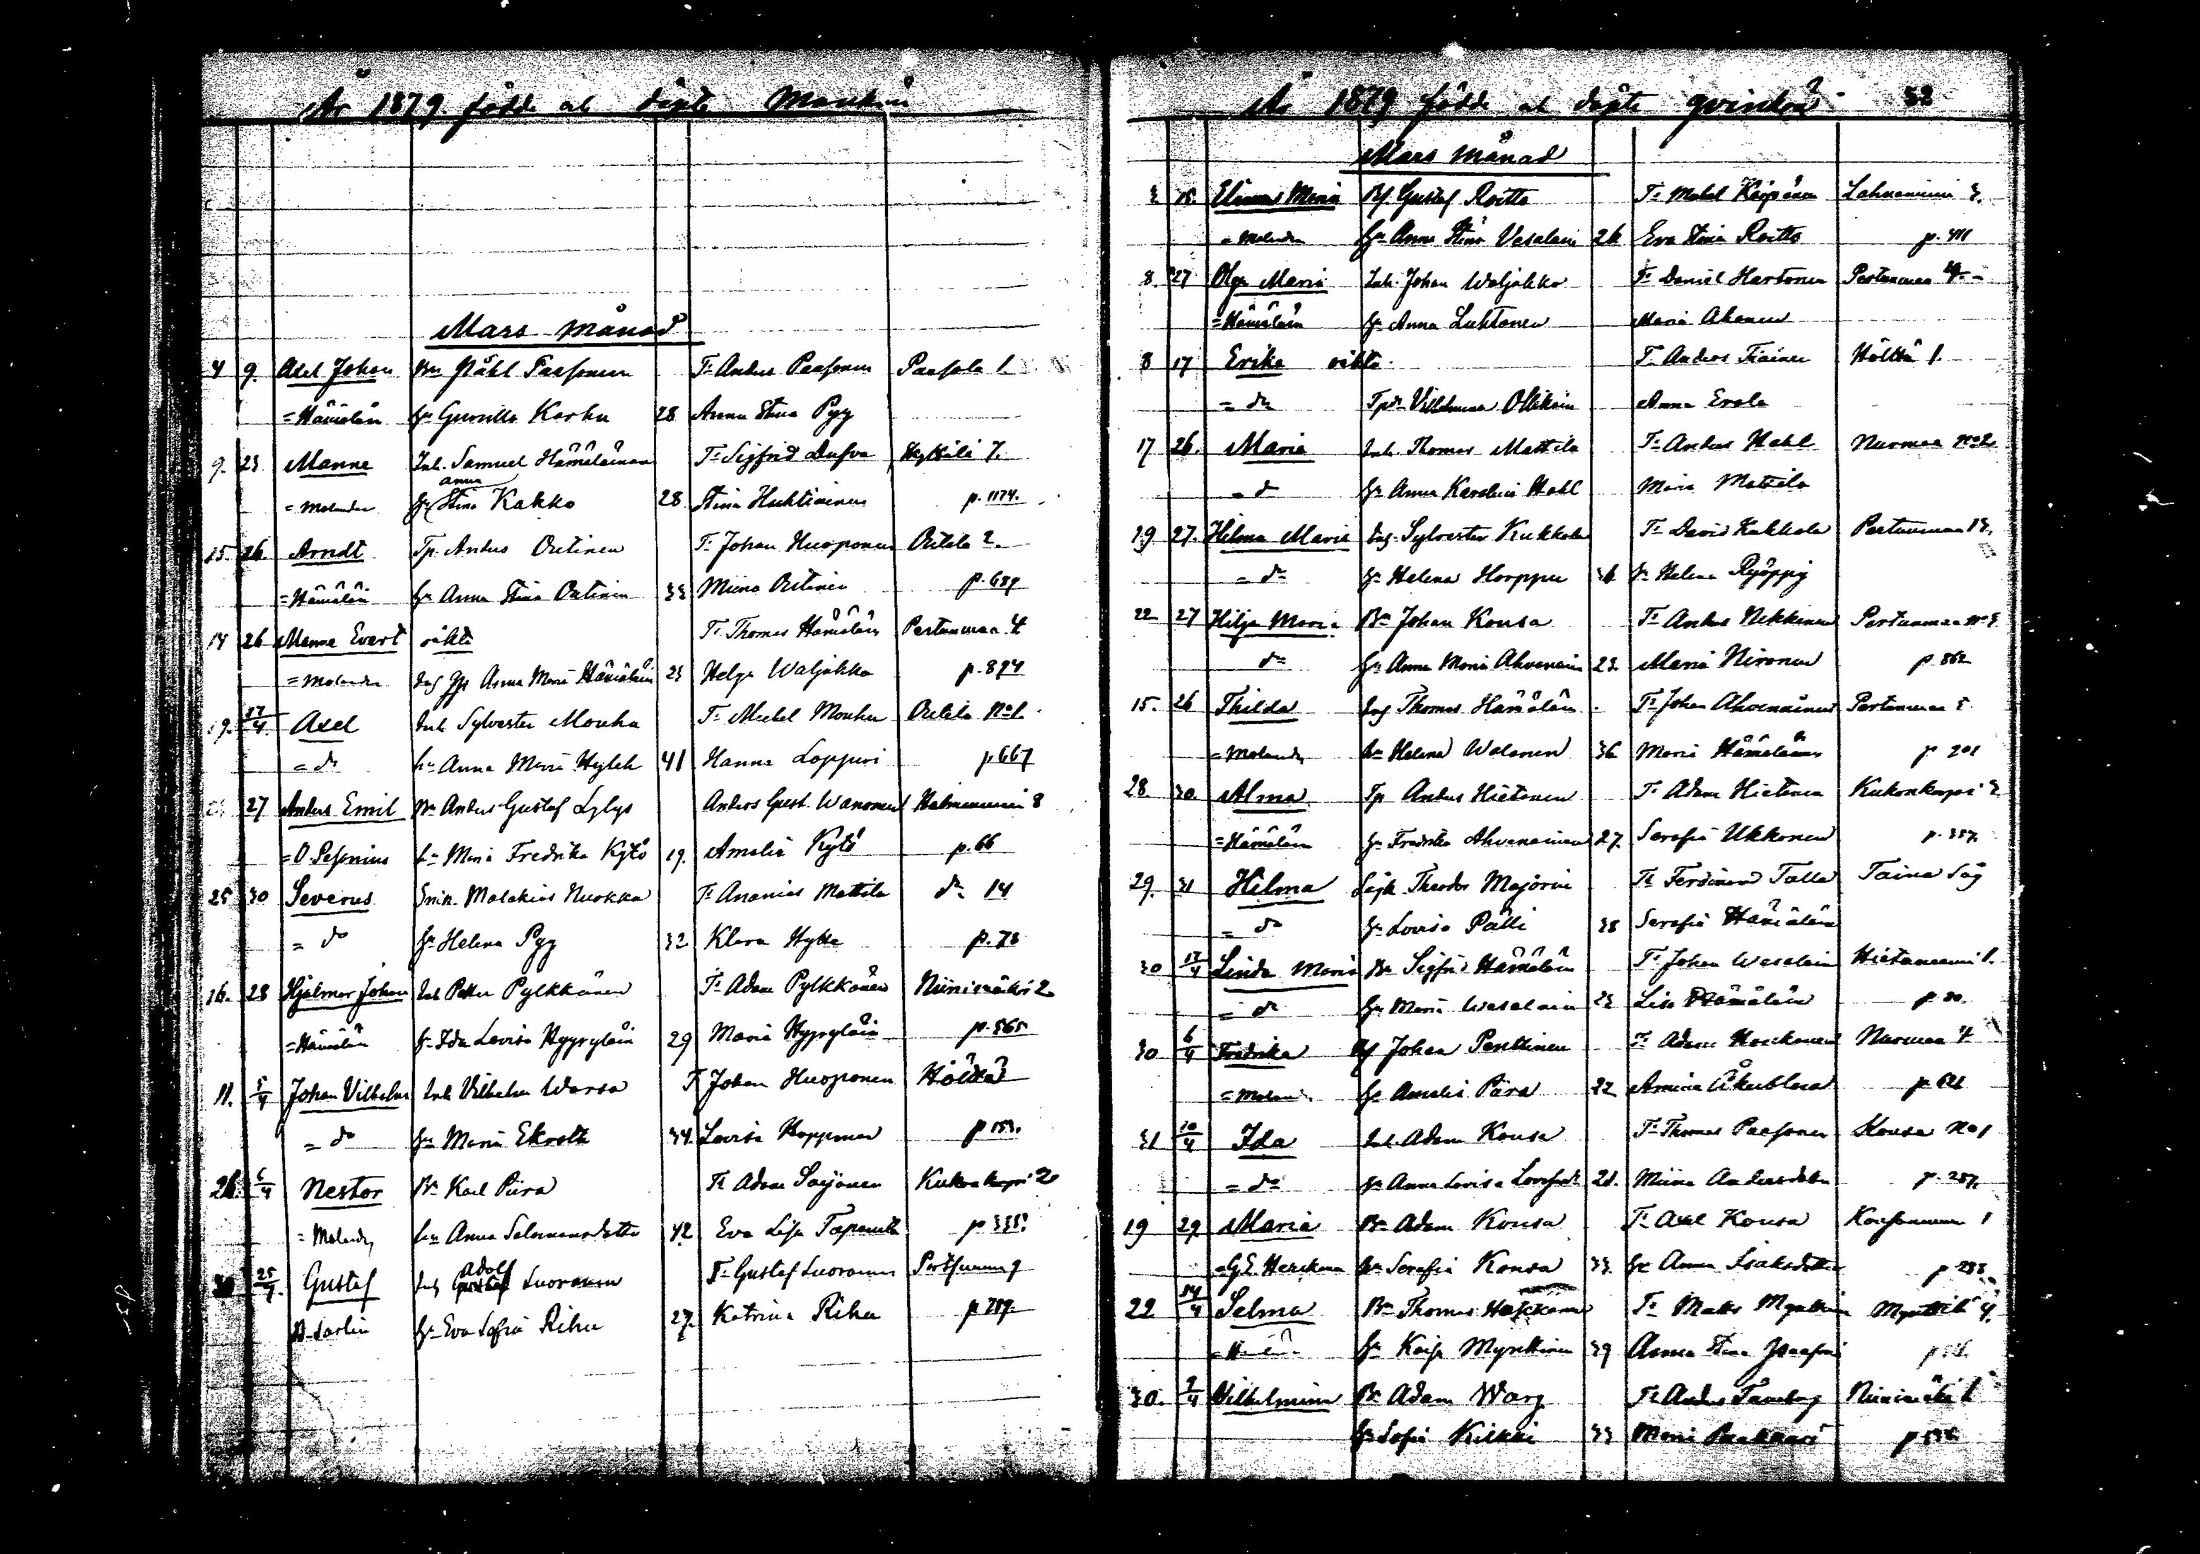 År 1879. födde ok döpte Mankön
Mars månad
4 9. Axel Johan Bn Påhl Paasonen Tr Anders Paasonen Paasola 1.
= Hämäläin hu Gunilla Karhu 28 Anna Stina Pyy
9. 23 Manne Inh. Samuel Hämäläinen Tr Sigfrid Dufva Hytkilä 7.
= Molander hu Anna Stina Kakko 28 Stina Huhtiainen p. 1174.
15. 26. Arndt Tp. Anders Ortinen Tr Johan Huoponen Orttela 2.
= Hämäläin hu Anna Stina Ortinen 33 Miina Ortinen p. 689
14 26 Manne Evert oäkta Tr Thomas Hämäläin Pertunmaa 4
= Molander Anna Maria Hämäläin 23 Helga Waljakka p. 894
19. 17/4 Axel Inh Sylvester Mouhu Tr Mickel Mouhu Orttela No 1.
= do hu Anna Maria Hylek 41 Hanna Loppuri p. 667
27 Anders Emil Bn Anders Gustaf Lylys Anders Gust. Wanonen Halmeniemi 8
= O. Pesonius hu Maria Fredrika Kytö 19. Amalia Kytö p. 66
25 30 Severus Malakias Nuokka Tr Ananias Mattila do 14
= do hu Helena Pyy 32 Klara Hytte p. 78
16. 28 Hjalmar Johan Inh Petter Pylkkänen Tr Adam Pylkkänen Niinimäki 2
= Hämäläin hu Ida Lovisa Hyyryläin 29 Maria Hyyryläin p. 565
11. 5/4 Johan Vilhelm Inh Vilhelm Warsa Tr Johan Huoponen Höltta
= do hu Maria Ekroth 34. Lovisa Hopponen p 153.
26. 6/4 Nestor Bn Karl Piira Tr Adam Soijonen Kukonkorpi 2
= Molander hu Anna Salomonsdotter 42 Eva Lisa p 335.
30 25/4. Gustaf Inh Adolf Luoranen Tr Gustaf Luoranen Pertjunmaa 9
A. Sarlin hu Eva Sofia Rihu 27. Katrina Rihu p 789.
År 1879 födde ok döpte qvinkön 52
Mars månad
3 15. Maria Gustaf Roitto Tr Lahnaniemi 3.
= Molander hu Anna Stina Vesalain 26 Eva Stina Roitto p. 411
8. 27 Olga Maria Inh. Johan Waljakka Tr Daniel Hartonen Pertunmaa 4
= Hämäläin hu Anna Luhtanen Maria Ahonen
8 17 Erika oäkta. Tr Anders Tiainen Hölttä 1.
= do Tpdr Vilhelmina Ollikain Anna Erola
17 26. Maria Inh. Thomas Mattila Tr Anders Hahl Nurmaa No 2
= do hu Anna Karolina Hahl Maria Mattila
19 27. Hilma Maria Inh. Sylvester Kukkola Tr David Kukkola Pertunmaa 13.
= do hu Helena Horppu 36 hu Helena Ryöppy
22 27 Hilja Maria Bn Johan Kousa Tr Anders Ukkonen Pertunmaa No 3
do hu Anna Maria Ahvenain 23. Maria Nironen p. 862
15. 26 Thilda Inh Thomas Hämäläin Tr Johan Ahvenainen Pertunmaa 5
= Molander hu Helena Walonen 36 Maria Hämäläinen p 201
28. 30. Alma Tp Anders Hietanen Tr Adam Hietanen Kukonkorpi 2
= Hämäläin hu Fredrika Ahvenainen 27. Serafia Ukkonen p. 357.
29. 31 Hilma Theodor Majorin Tr Ferdinand Talla Taina Såg
= do hu Lovisa Pälli 38 Serafia Hämäläin
30 17/4 Linda Maria Bn Sigfrid Hämäläin Tr Johan Wesalain Hietaniemi 1.
= do hu Maria Wesalain 23 Lisa Hämäläin p. 80.
30 6/4 Fredrika Johan Penttinen Tr Adam Nurmaa 4
= Molander hu Amalia Piira 22 Amina Åkerblom p. 621
31 10/4 Ida Inh Adam Kousa Tr Thomas Paasonen Kousa No 1
= do hu Anna Lovisa 28. Miina Andersdotter p. 287.
19 29. Maria Bn Adam Kousa Tr Axel Kousa 1
= G.E. Herckman hu Serafia Kousa 33. hu Anna Isaksdotter p 288
22 14/4 Selma Bn Thomas Tr Matts Myntti 4.
hu Kaisa Mynttinen 39 Anna Stina
30. 9/4 Vilhelmina Bn Adam Warg Tr Anders Tamberg Niinimäki 1
hu Sofia Kilkki 33 Maria